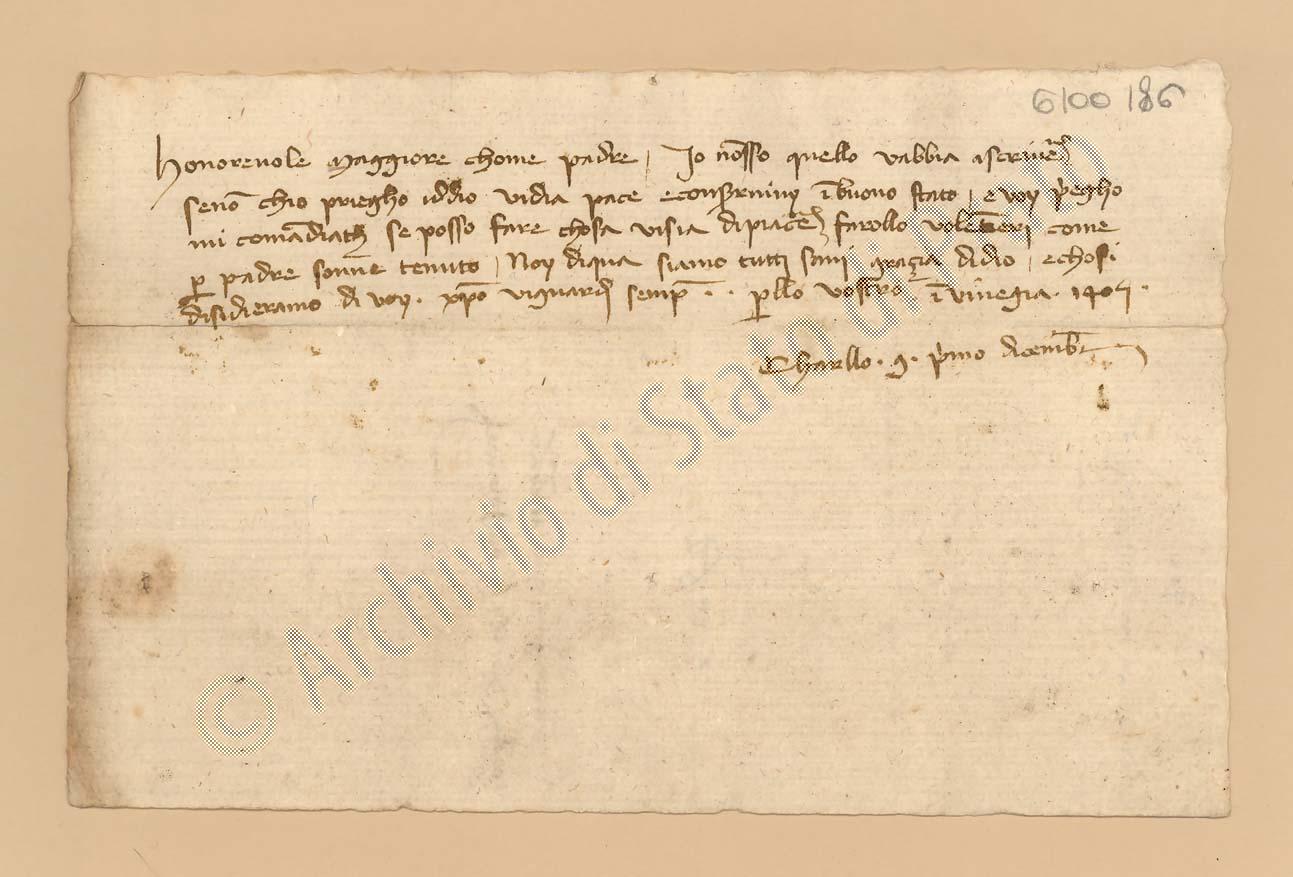 6100 186
Honorevole maggiore chome padre / Io nosso quello vabbia ascrivere
seno chio priegho iddio vidia pace econservivi i buono stato / e voy priegho
mi comadiate se posso fare chosa visia dipiacere farollo volentieri come
per padre sonne tenuto / Noy diqua siamo tutti sani grazia didio / echosi
disideramo di voy . xpo viguardi semp . . pllo vostro . i vinegia .
Charllo . a . primo dicembre
© Archivio di Stato di Prato